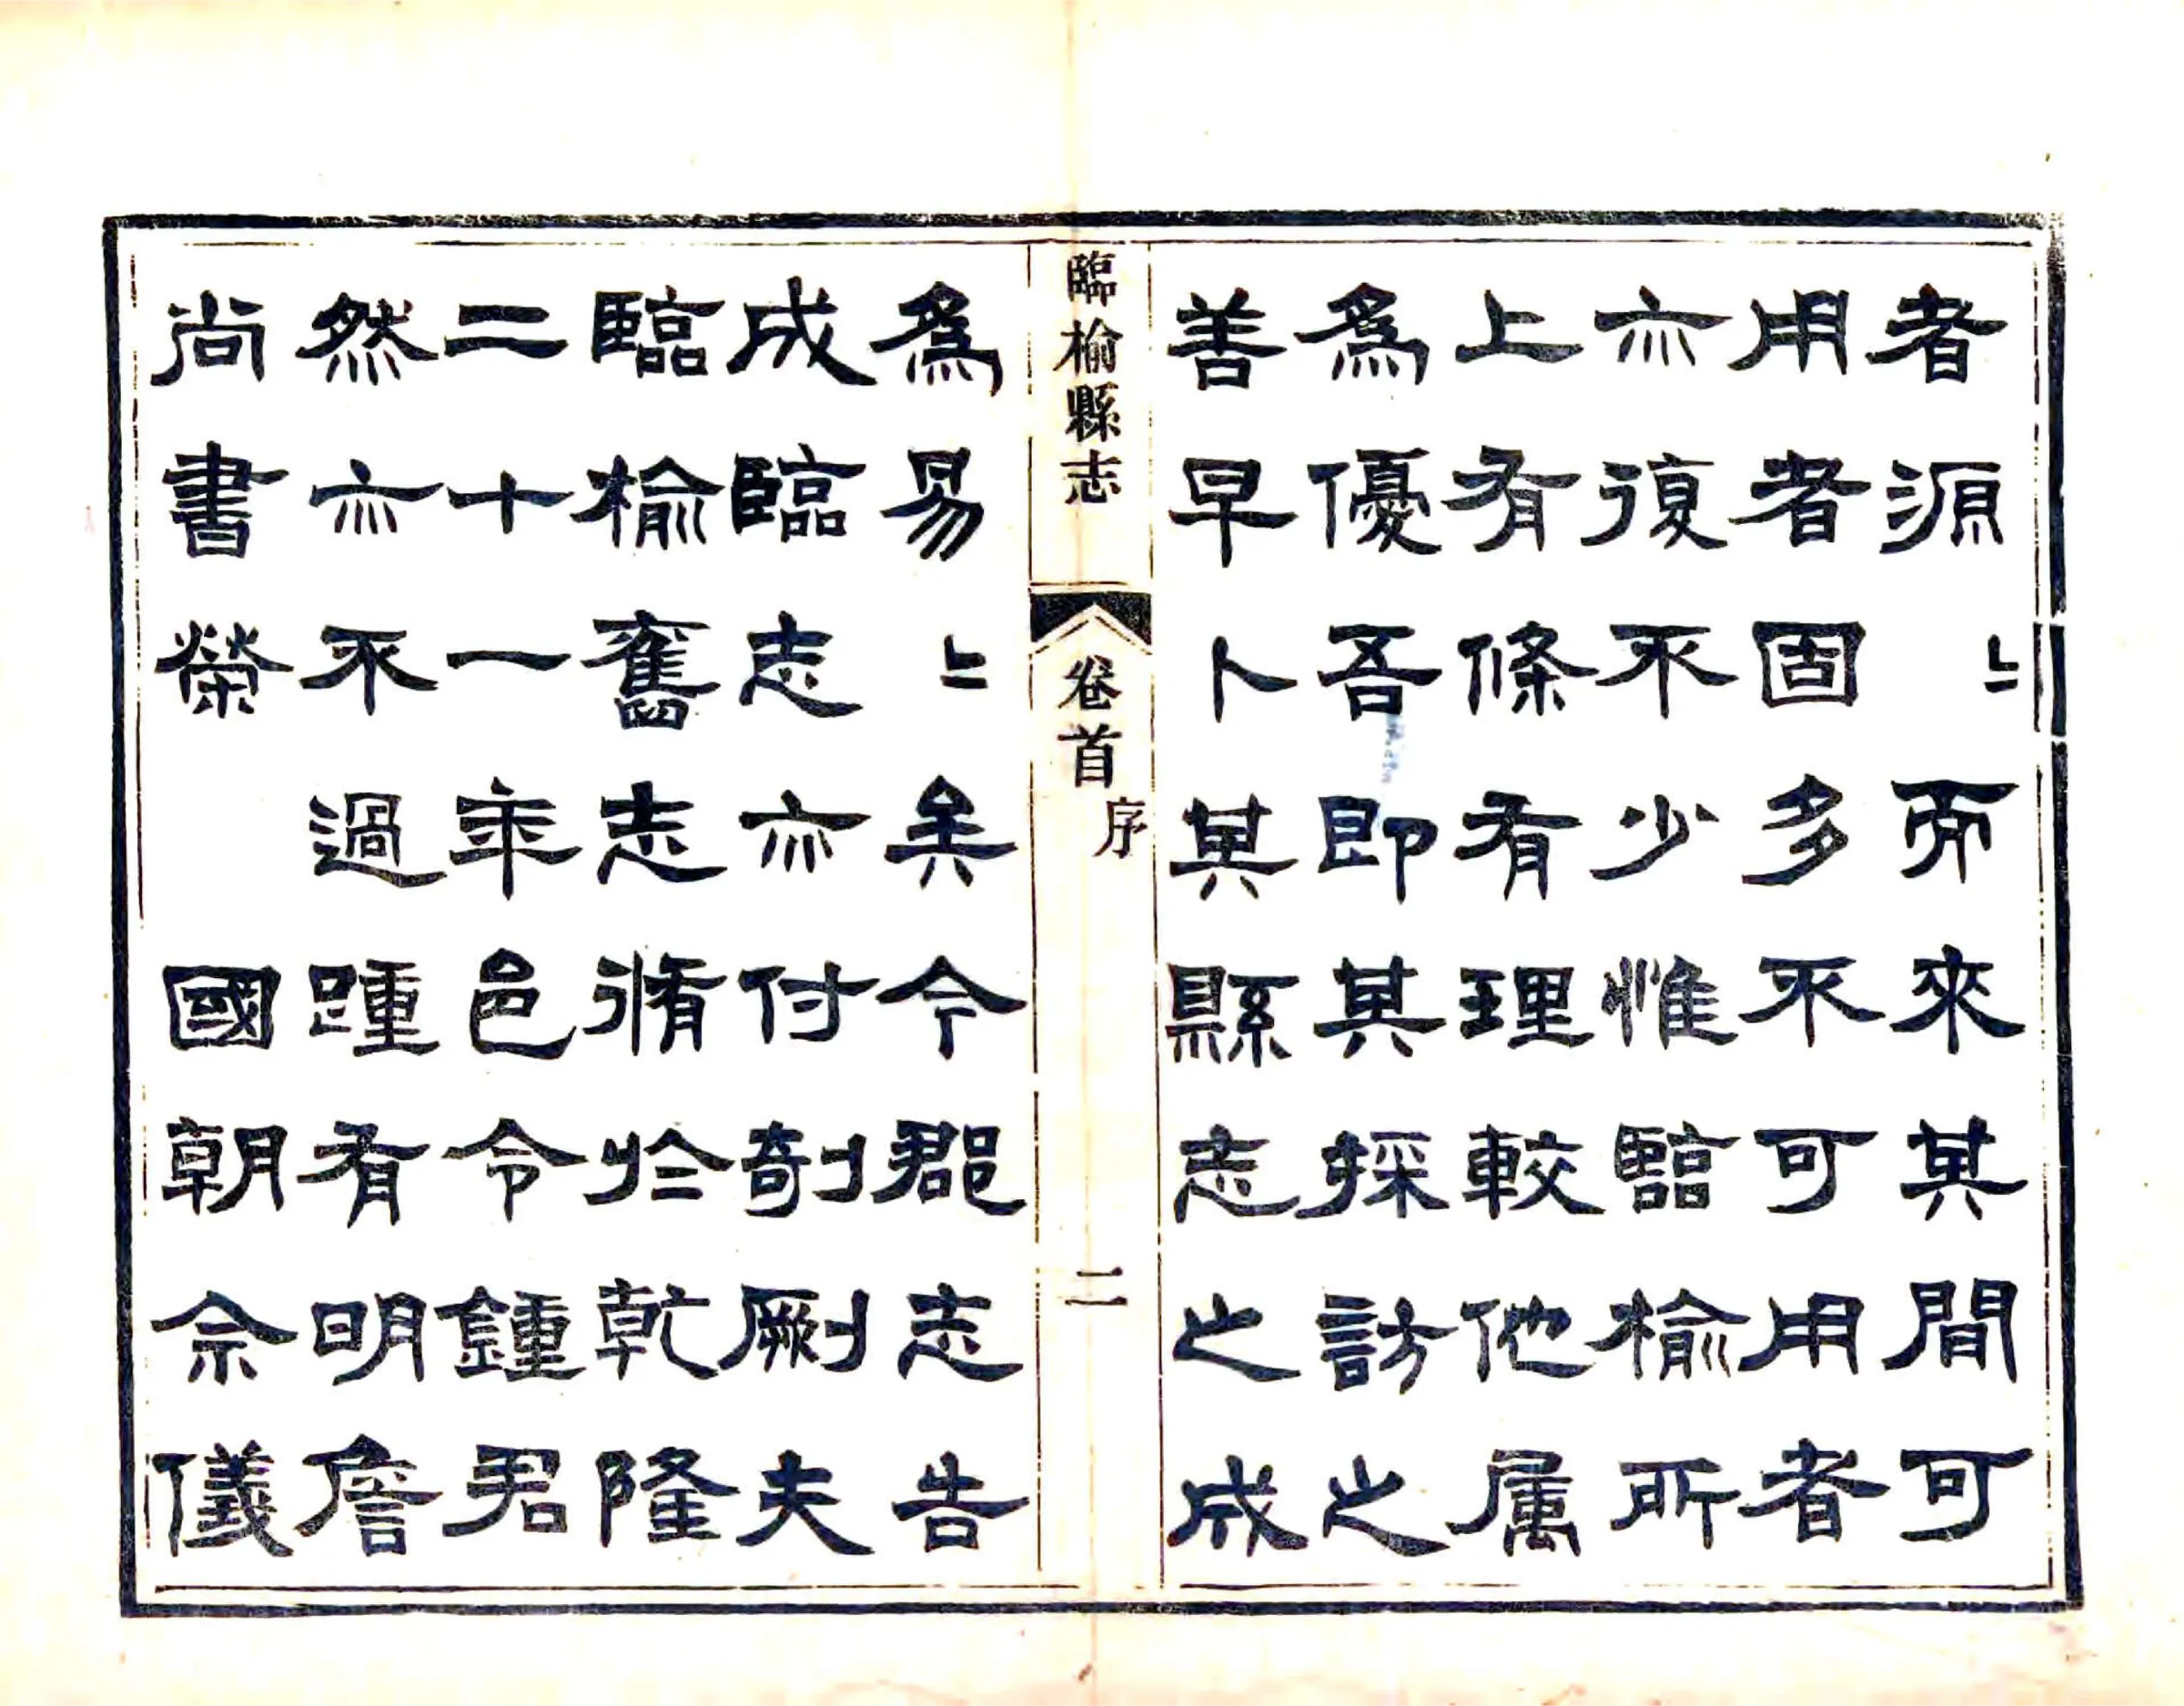 者源〻而來其間可
用者固多不可用者
亦復不少惟臨榆所
上有條有理較他属
爲優吾即其採訪之
善早卜其縣志之成
臨榆縣志 卷首 序 二
爲易〻矣今郡志告
成臨志亦付剞劂夫
臨榆舊志脩於乾隆
二十一年邑令鍾君
然亦不過踵有明詹
尚書榮 國朝佘儀